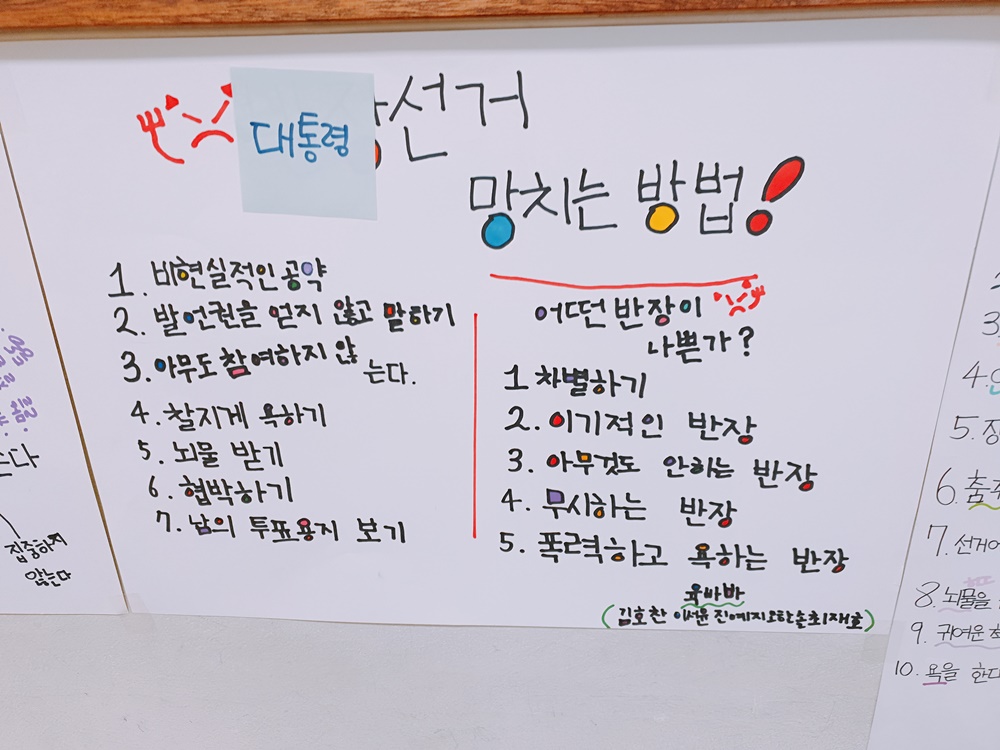 대통령
선거
망치는 방법!
1. 비현실적인 공약
2. 발언권을 얻지 않고 말하기
3. 아무도 참여하지 않
는다.
4. 찰지게 욕하기
5. 뇌물 받기
6. 협박하기
7. 남의 투표용지 보기
어떤 반장이
나쁜가?
1 차별하기
2. 이기적인 반장
3. 아무것도 안하는 반장
4. 무시하는 반장
5. 폭력하고 욕하는 반장
육바반
(김호찬 이서윤 진예지 오한솔 최재호)
집중하지
않는다
5.
6. 춤
7. 선거
8. 뇌물을
9. 귀여운
10. 욕을 한다